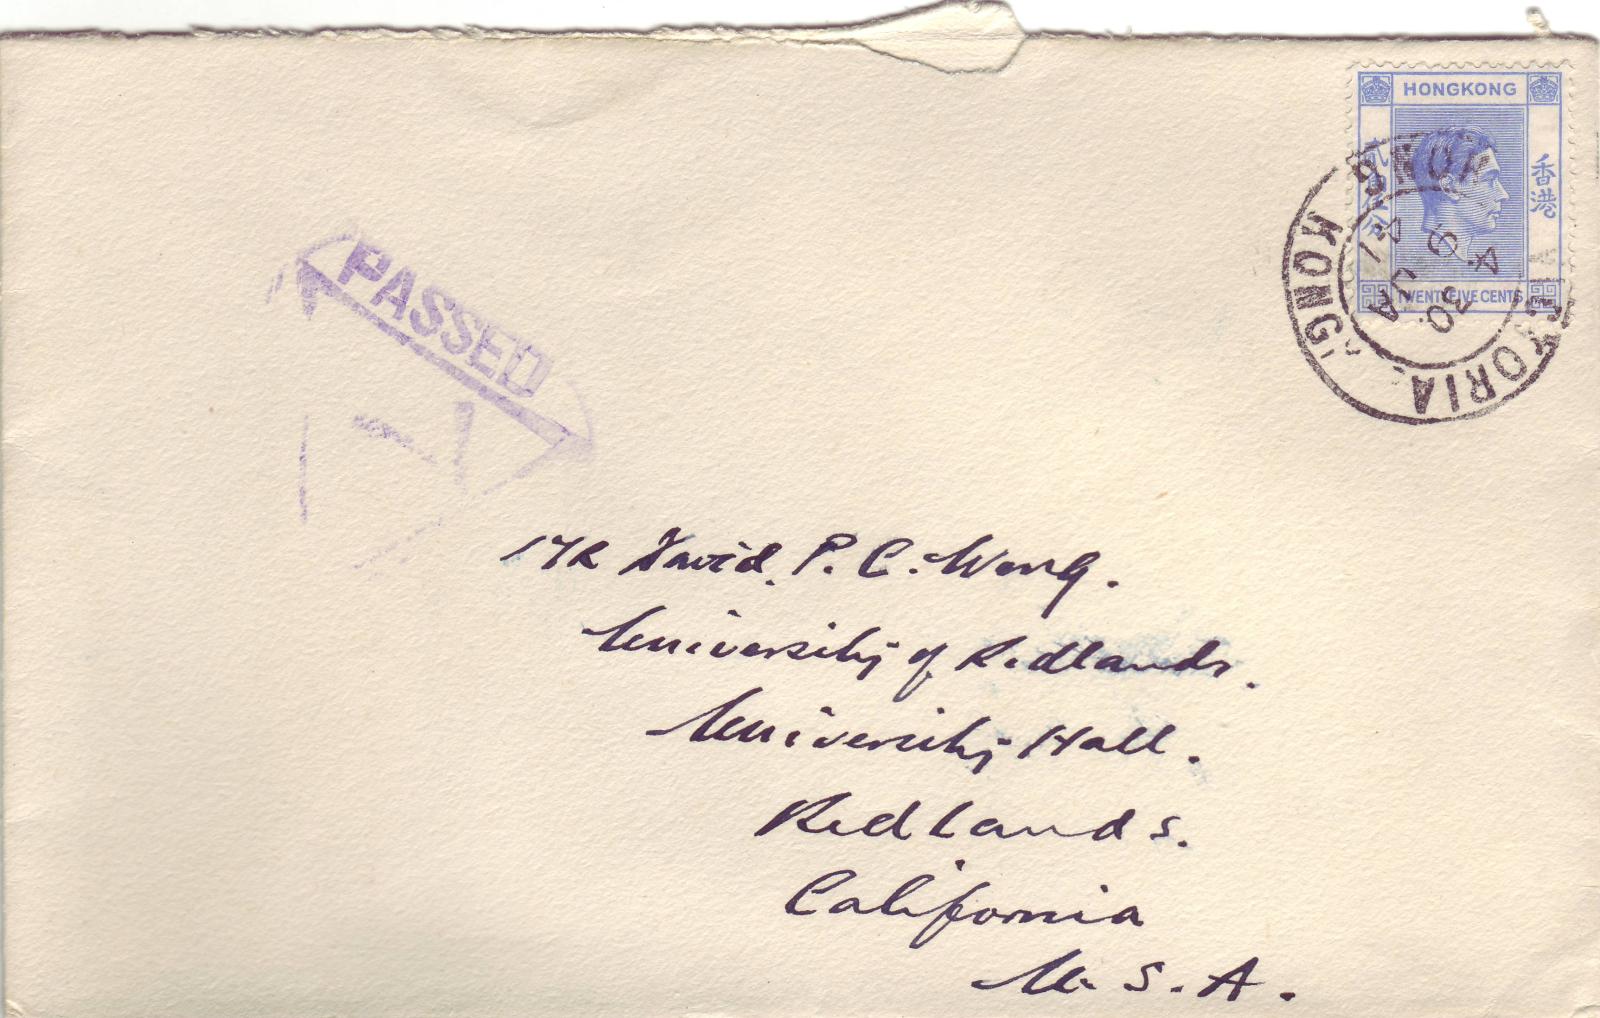 HONGKONG
貳毫伍分
香港
TWENTY FIVE CENTS
VICTORIA
HONG KONG
PASSED
MR David. P. C. Wong.
University of Redlands.
University Hall.
Redlands.
California
U. S. A.